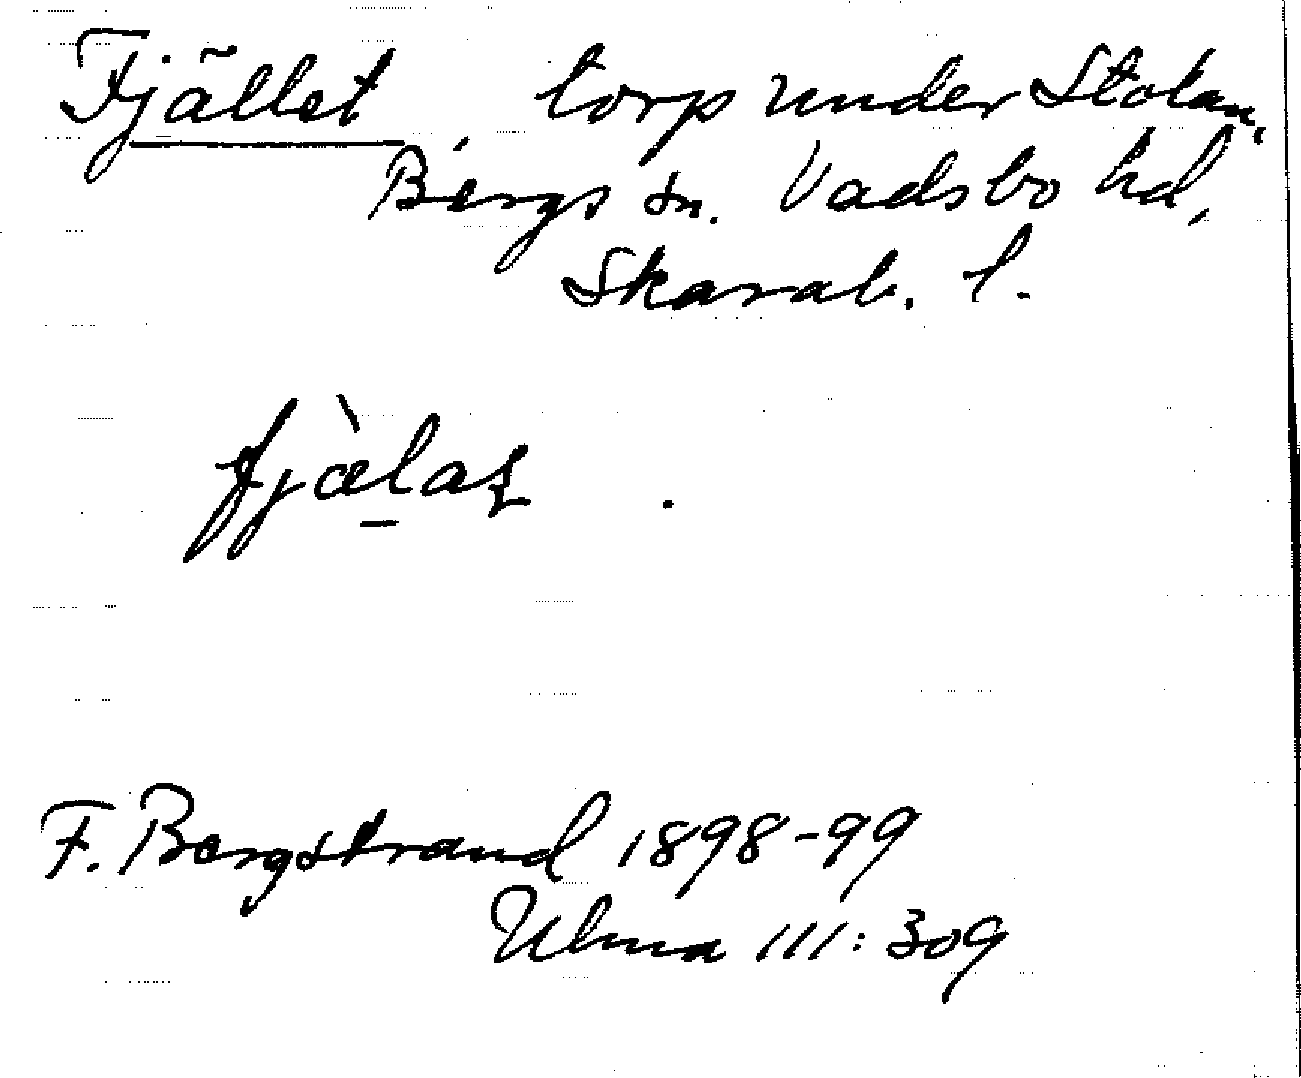 Fjället, torp under Stolan,
Bergs sn. Vadsbo hd,
Skarab. l.
fjæ̀l̠at
F. Bergstrand 1898-99
Ulma 111:309